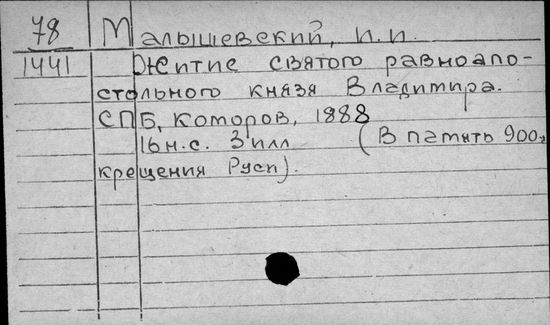 78 Малышевский, И.И.
1441 Житие святого равноапо-
стольного князя Владимира.
СПБ, Которов, 1888
16н.с. 3 илл (В память 900,
крещения Руси).